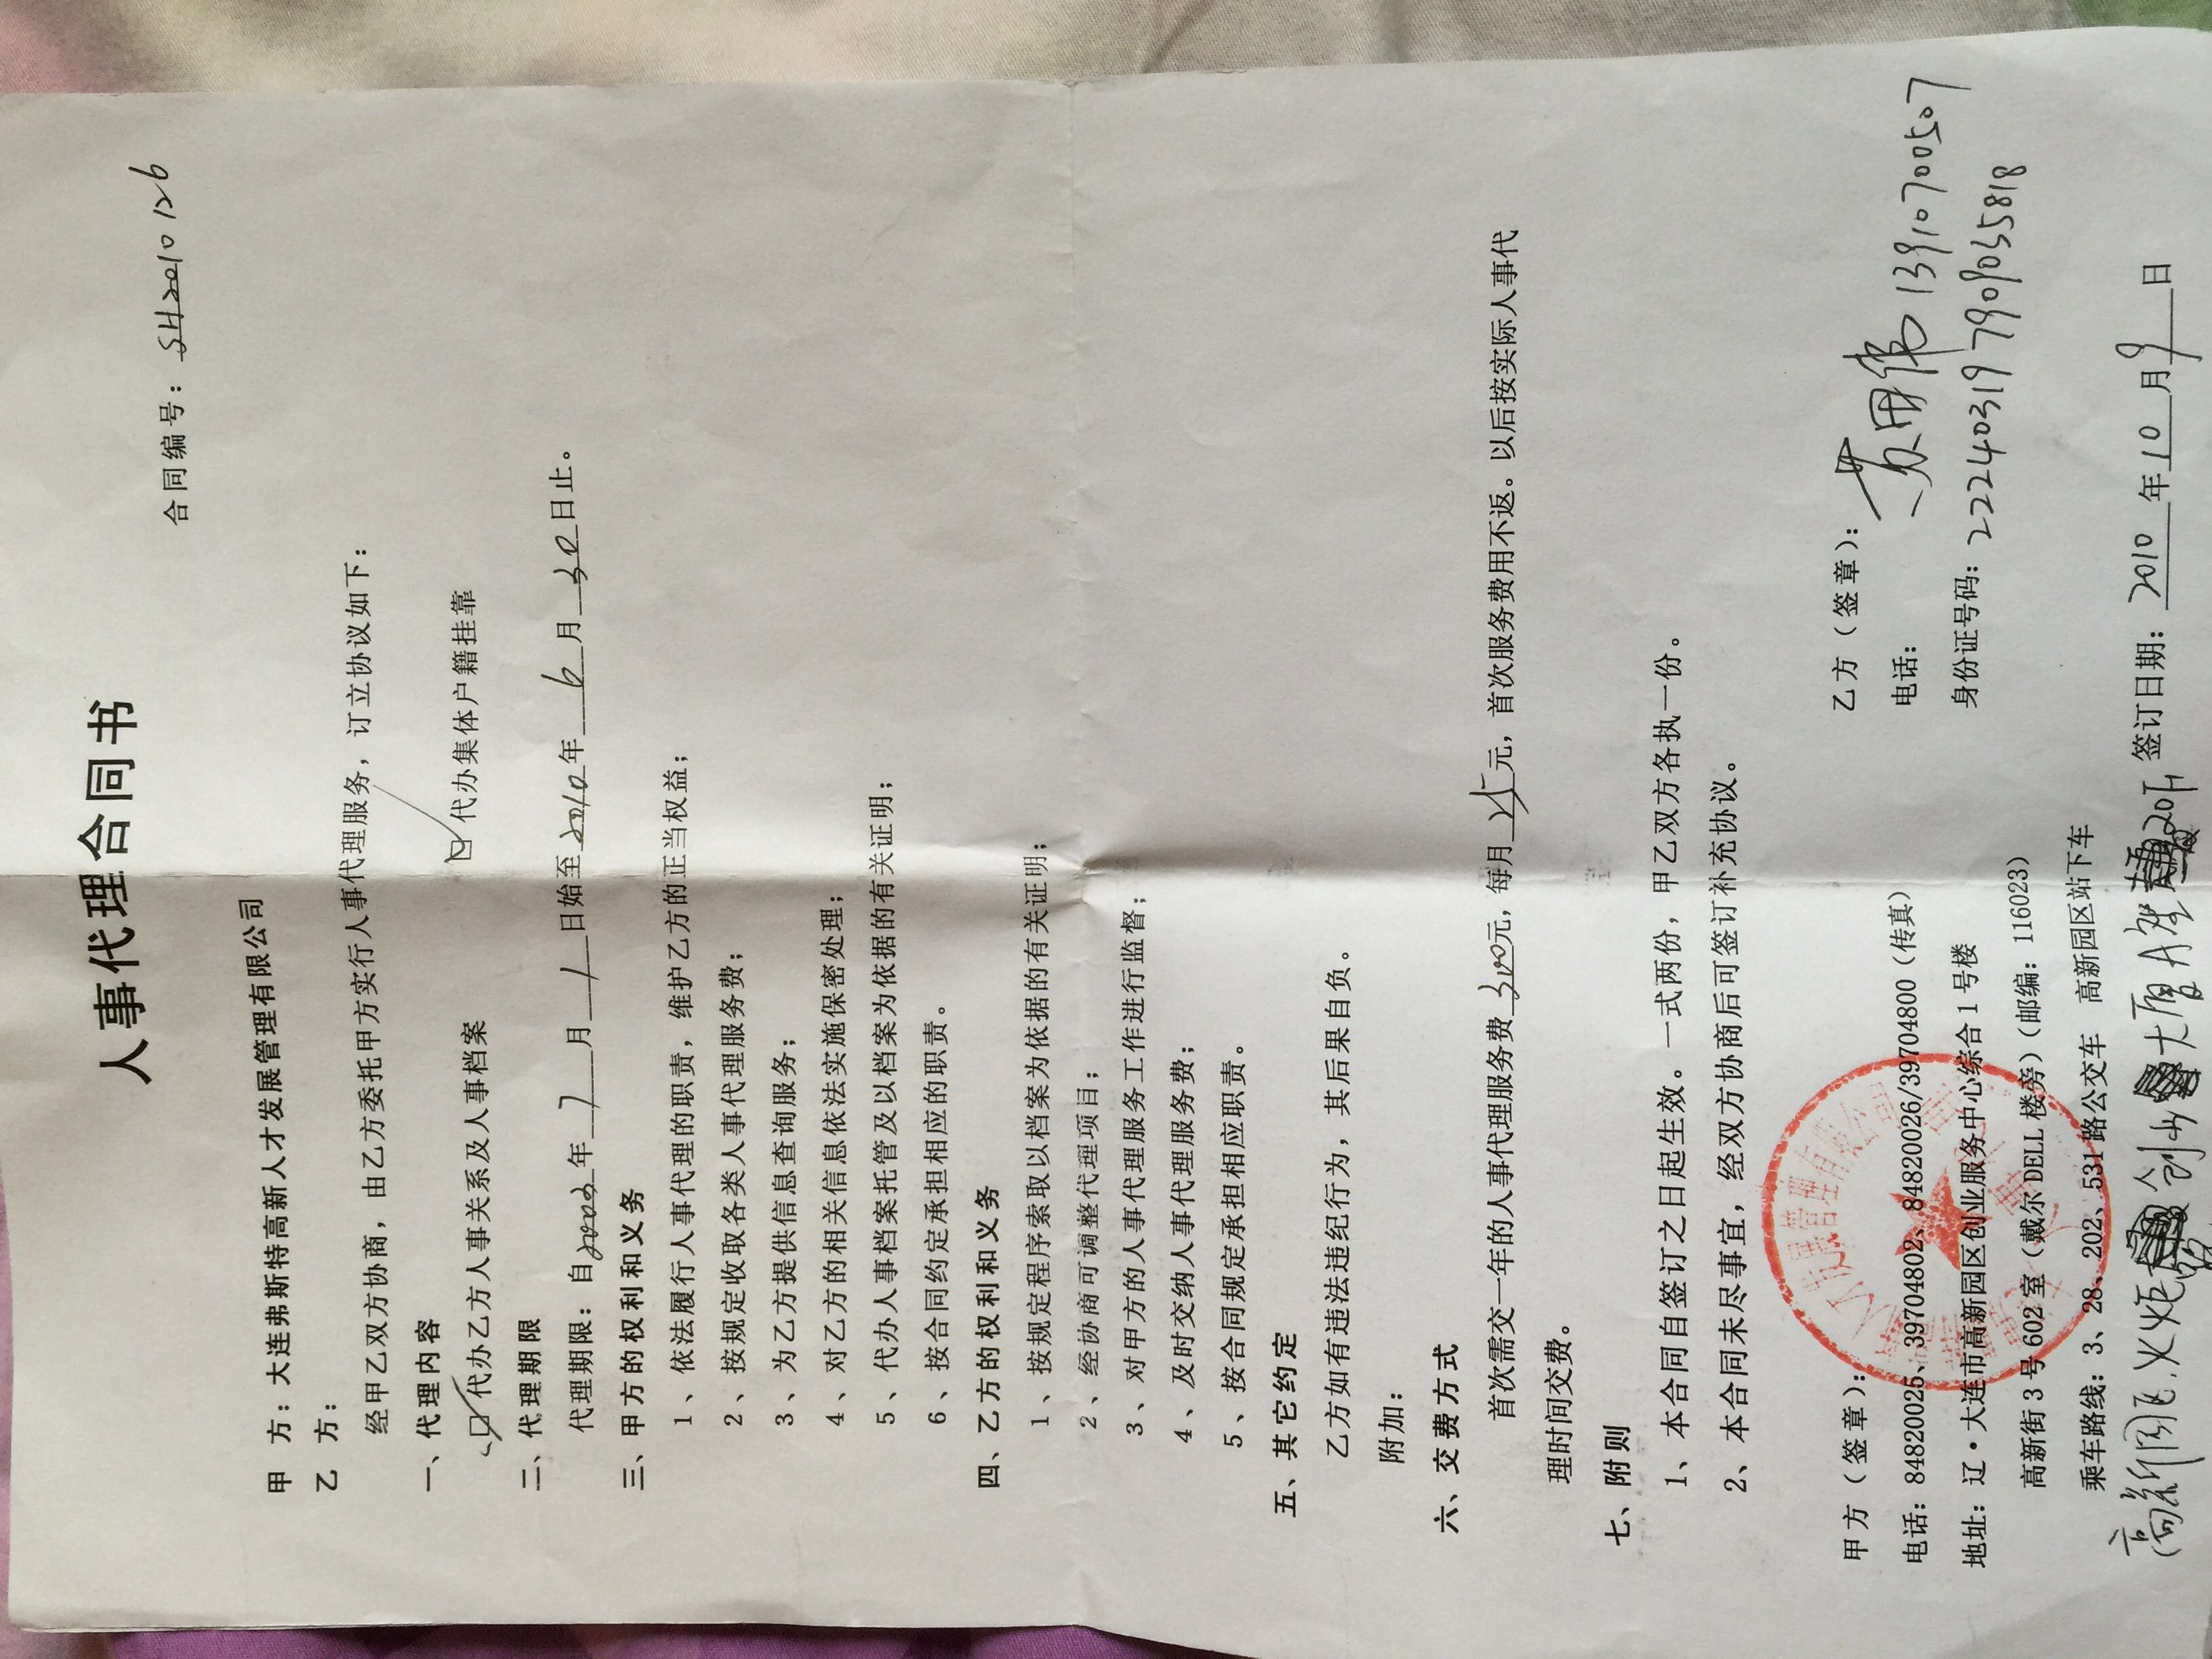 人事代理合同书
合同编号：SH2010126
甲 方：大连弗斯特高新人才发展管理有限公司
乙 方：
经甲乙双方协商，由乙方委托甲方实行人事代理服务，订立协议如下：
一、代理内容
□代办乙方人事关系及人事档案 □ 代办集体户籍挂靠
二、代理期限
代理期限：自 年7月1日始至2010年6月30日止。
三、甲方的权利和义务
1、依法履行人事代理的职责，维护乙方的正当权益；
2、按规定收取各类人事代理服务费；
3、为乙方提供信息查询服务；
4、对乙方的相关信息依法实施保密处理；
5、代办人事档案托管及以档案为依据的有关证明；
6、按合同约定承担相应的职责。
四、乙方的权利和义务
1、按规定程序索取以档案为依据的有关证明；
2、经协商可调整代理项目；
3、对甲方的人事代理服务工作进行监督；
4、及时交纳人事代理服务费；
5、按合同规定承担相应职责。
五、其它约定
乙方如有违法违纪行为，其后果自负。
附加：
六、交费方式
首次需交一年的人事代理服务费300元，每月25元，首次服务费用不返。以后按实际人事代
理时间交费。
七、附则
1、本合同自签订之日起生效。一式两份，甲乙双方各执一份。
2、本合同未尽事宜，经双方协商后可签订补充协议。
甲方（签章）： 乙方（签章）：
电话：84820025、39704802、84820026/39704800（传真） 电话： 13910700507
地址：辽·大连市高新园区创业服务中心综合1号楼 身份证号码：222403197909035818
高新街3号602室（戴尔DELL楼旁）（邮编：116023）
乘车路线：3、28、202、531路公交车 高新园区站下车
（高新园区火炬 大厦A座 签订日期：2010年10月9日